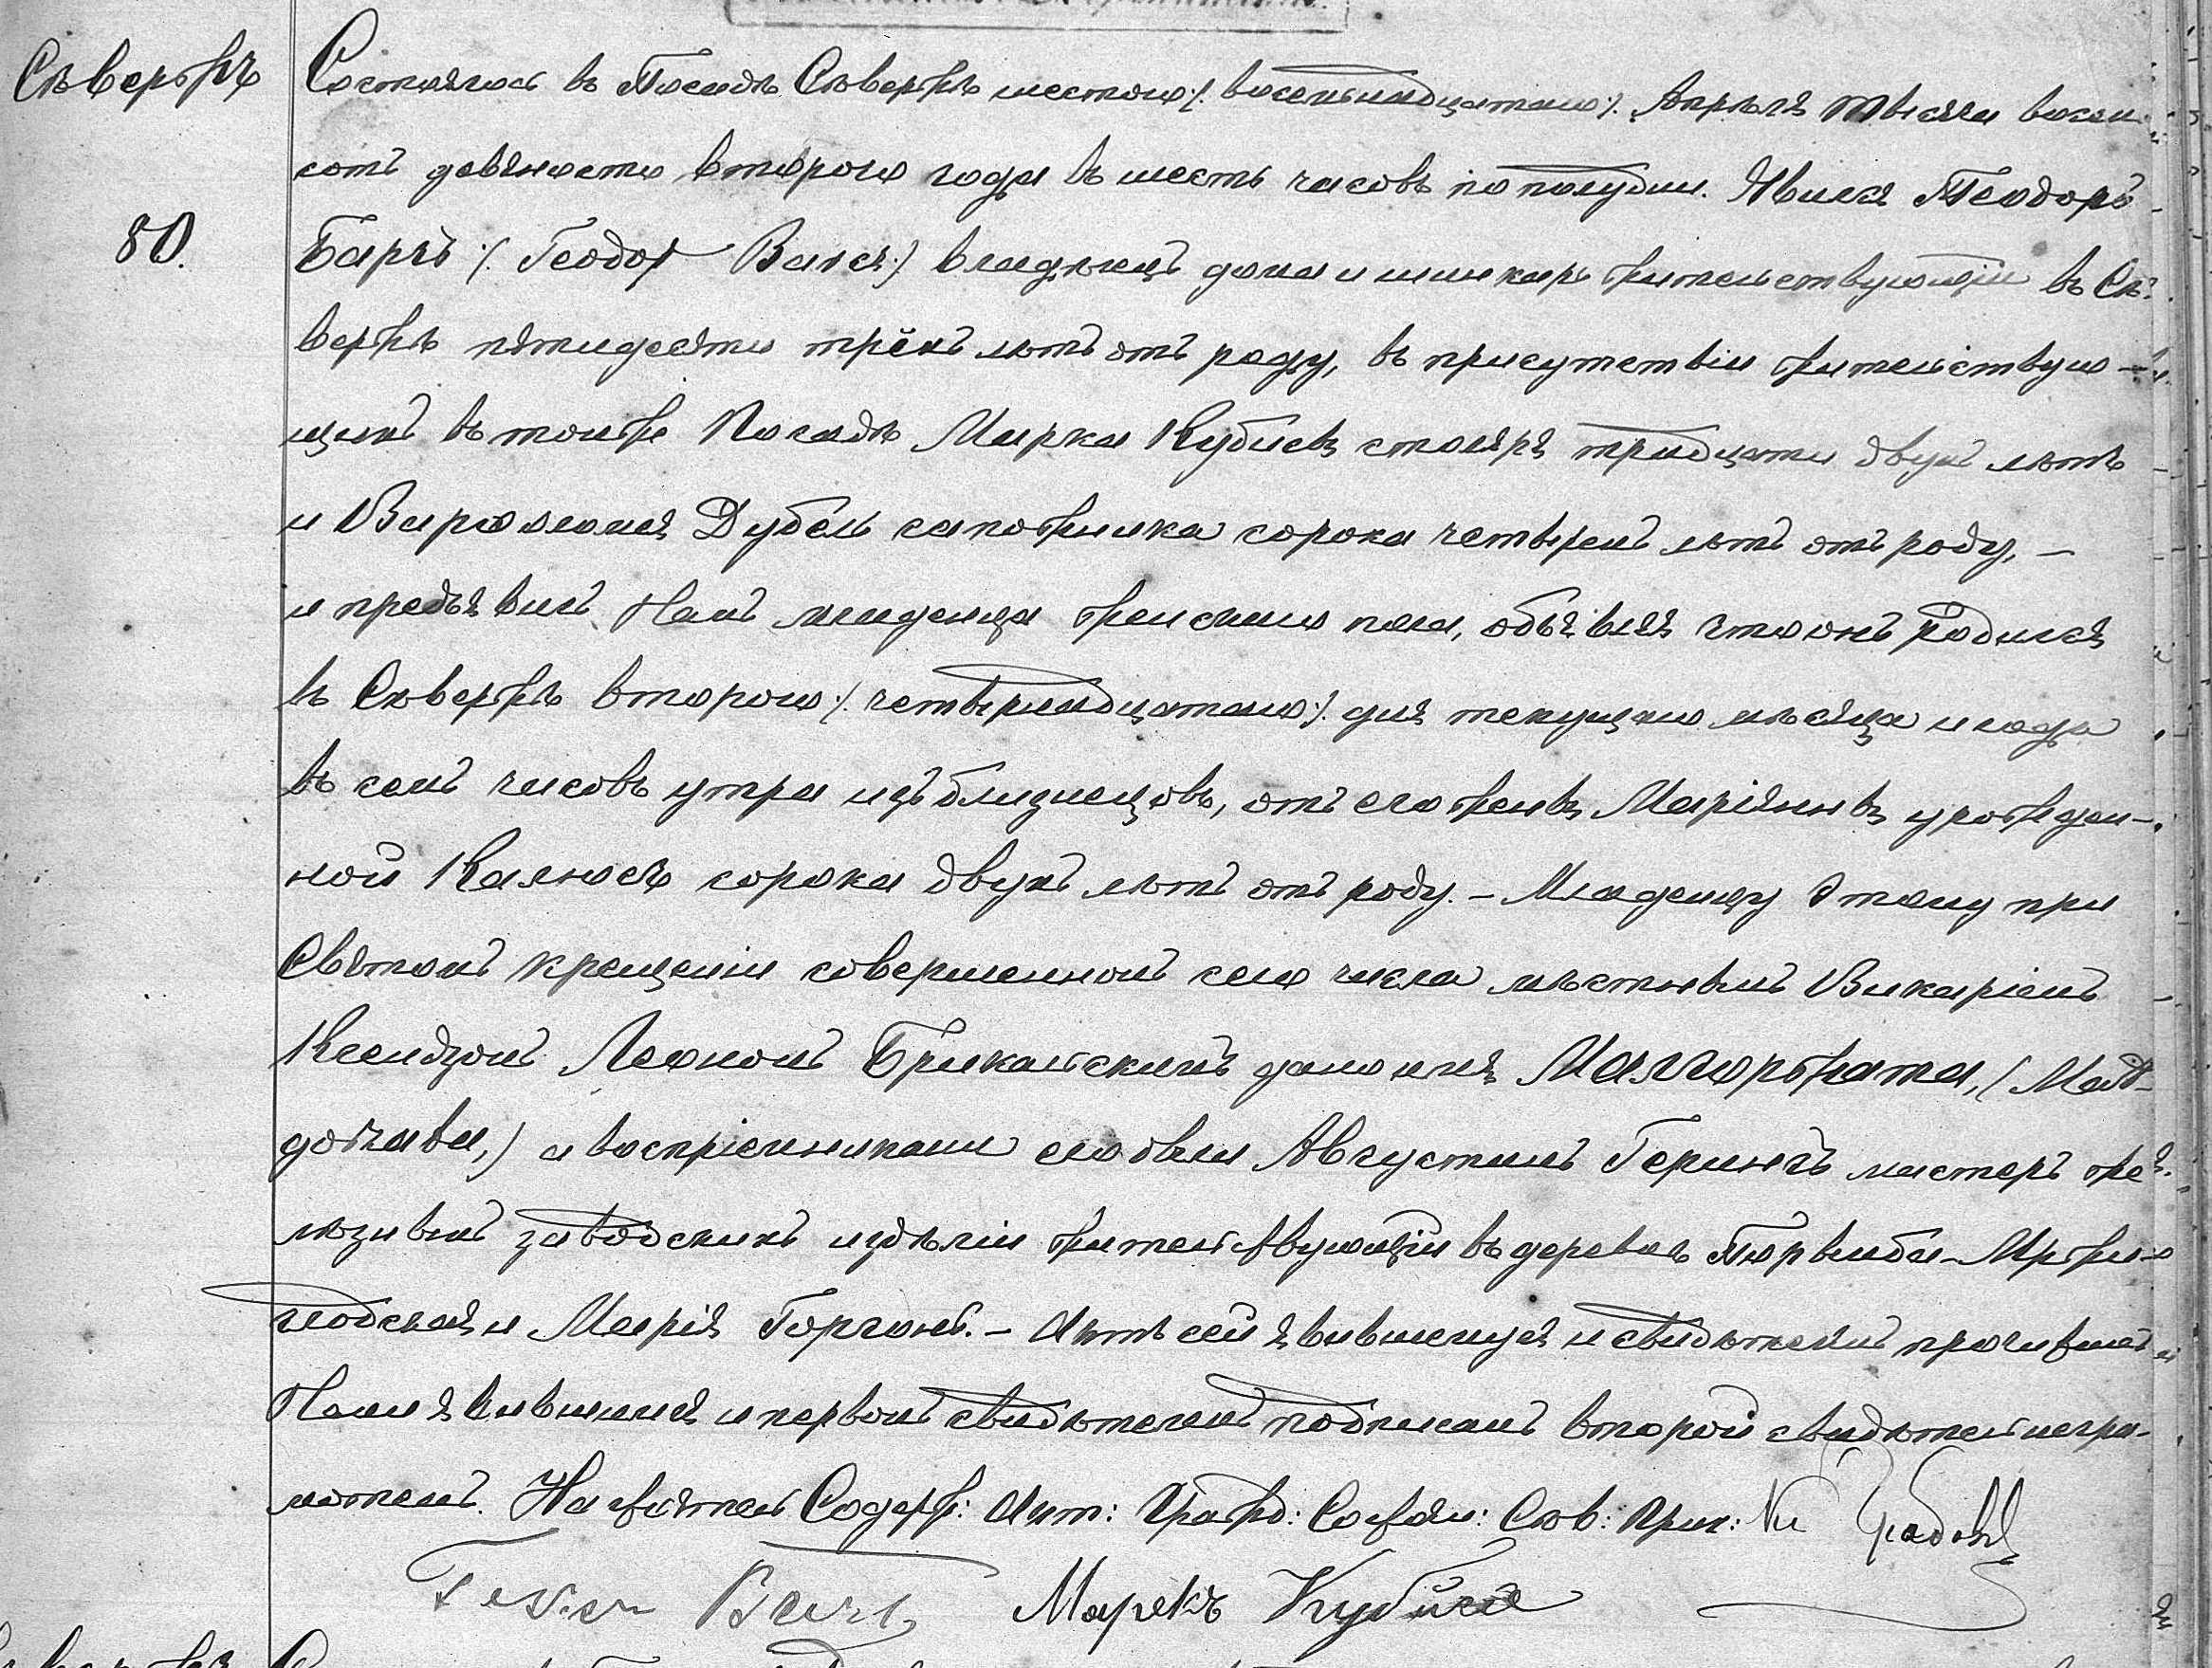 Сѣвержъ
Состоялось въ Посадѣ Сѣвержѣ шестого /: восемьнадцатаго :/ Апрѣля тысяча восем-
сотъ девяносто второго года въ шесть часовъ по полудни. Явился Теодоръ
80.
Барчъ /: Теодор :/ владѣлецъ дома и шинкарь жительствующій въ Сѣ-
вержѣ пятидесяти трёхъ лѣтъ отъ роду, въ присутствіи жительствую-
щихъ въ томже Посадѣ Марка Кубисы столяра тридцати двухъ лѣтъ
и Варфоломея Дубель сапожника сорока четырехъ лѣтъ отъ роду, –
и предъявилъ Намъ младенца женскаго пола, объявляя что онъ родился
въ Сѣвержѣ второго /: четырнадцатаго :/ дня текущаго мѣсяца и года
въ семь часовъ утра изъ близнецовъ, отъ его жены Маріянны урожден-
ной Калюсъ сорока двухъ лѣтъ отъ роду. – Младенцу этому при
Святомъ крещеніи совершенномъ сего числа мѣстнымъ Викаріемъ
Ксендзомъ Леономъ дано имя Малгоржата,
а воспріемниками его были Августинъ Герингъ мастеръ же-
лѣзныхъ заводскихъ издѣлій жительствующій въ деревнѣ
и Марія Горгонь. – Актъ сей явившемуся и свидѣтелямъ прочитанъ
Нами явившимся и первымъ свидѣтелемъ подписанъ второй свидѣтель негра-
мотенъ. Настоятель Содерж: Акт: Гражд: Состоян: Сѣв: Прих:
Теодор Барч Марекъ Кубиса